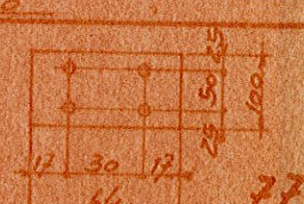 25
50
100
25
17 30 17
64
77